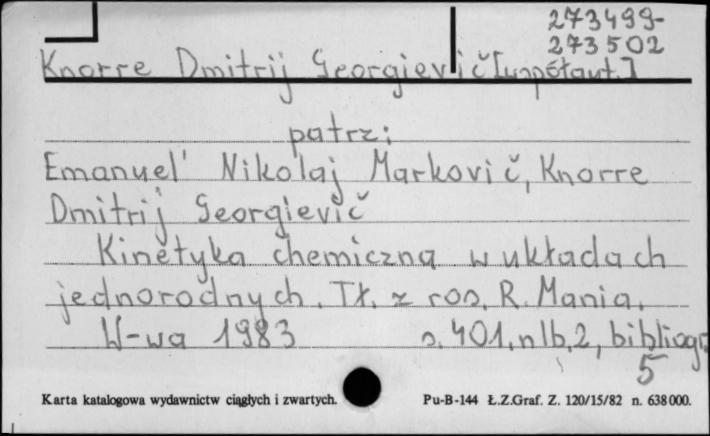 273499-
273502
Knorre Dmitrij Georgievič [współaut.]
patrz:
Emanuel' Nikolaj Markovič, Knorre
Dmitrij Georgievič
Kinetyka chemiczna w układach
jednorodnych. Tł. z ros. R. Mania.
W-wa 1983 s. 401, nlb. 2, bibliogr.
5
Karta katalogowa wydawnictw ciągłych i zwartych. Pu-B-144 Ł.Z.Graf. Z. 120/15/82 n. 638000.